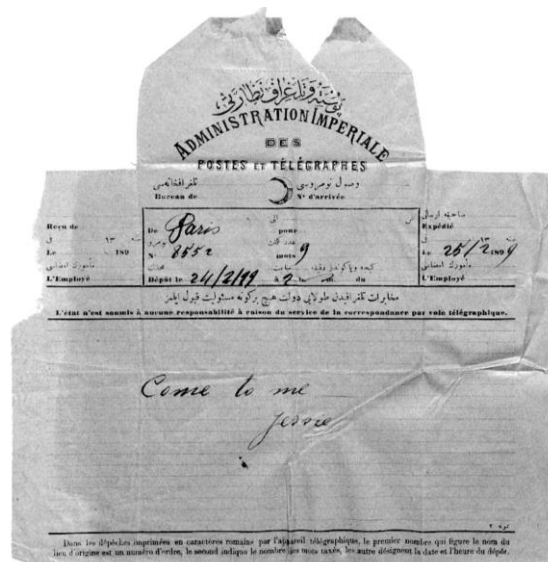 پوسته و تلغراف نظارتی
ADMINISTRATION IMPERIALE
DES
POSTES ET TÉLÉGRAPHES
تلغرافخانه‌سی وصول نومروسی
Bureau de N° d'arrivée
Reçu de De Paris pour Expédié
Le 189 N° 8552 mots 9 Le 25/2 1899
L'Employé Dépôt le 24/2/99 à 2 du L'Employé
مخابرات تلغرافیه‌دن طولایی دولت هیچ برکونه مسئولیت قبول ایلمز
L'état n'est soumis à aucune responsabilité à raison du service de la correspondance par voie télégraphique.
Come to me
Jessie
Dans les dépêches imprimées en caractères romains par l'appareil télégraphique, le premier nombre qui figure le nom du
lieu d'origine est un numéro d'ordre, le second indique le nombre des mots taxés, les autre désignent la date et l'heure du dépôt.